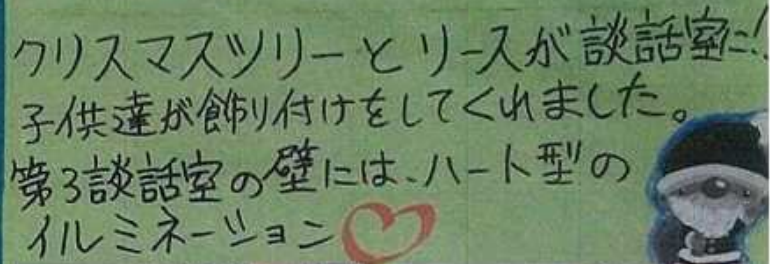 クリスマスツリーとリースが談話室に!
子供達が飾り付けをしてくれました。
第3談話室の壁には、ハート型の
イルミネーション